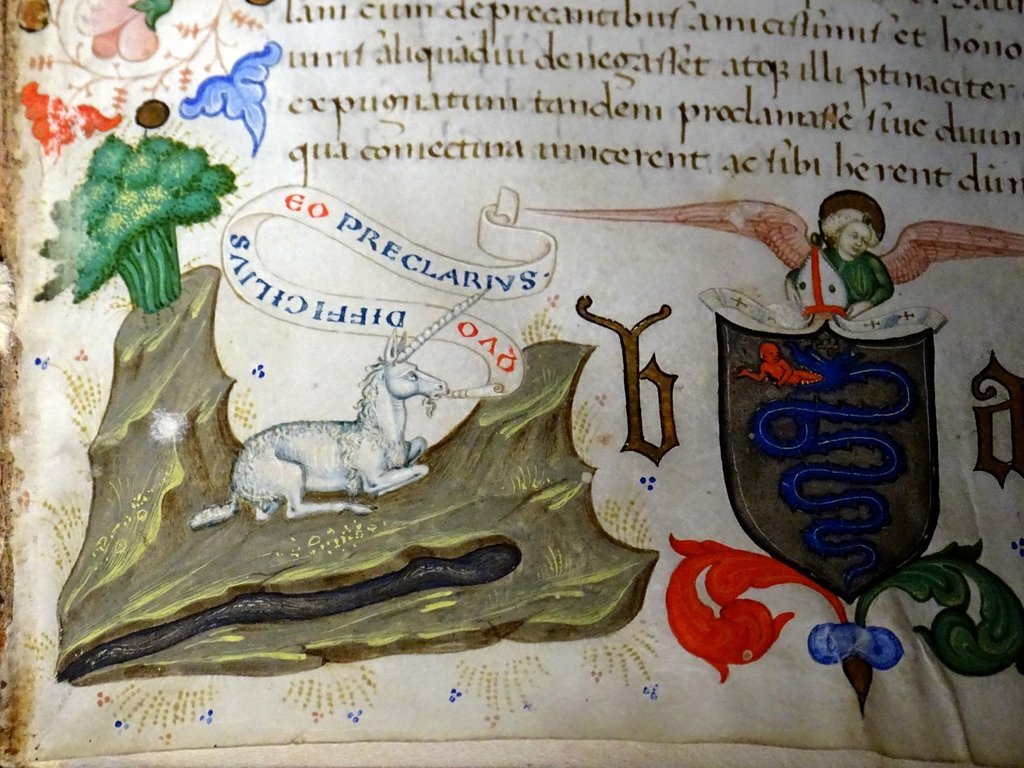 lam cum deprecantibus amicissimis et bono
iuris aliquadiu denegasset atqꝫ illi ptinaciter
expugnatum tandem proclamasse siue diuin
qua coniectura uincerent ac sibi herent dum
QVO
DIFFICILIVS
EO PRECLARIVS
b
a